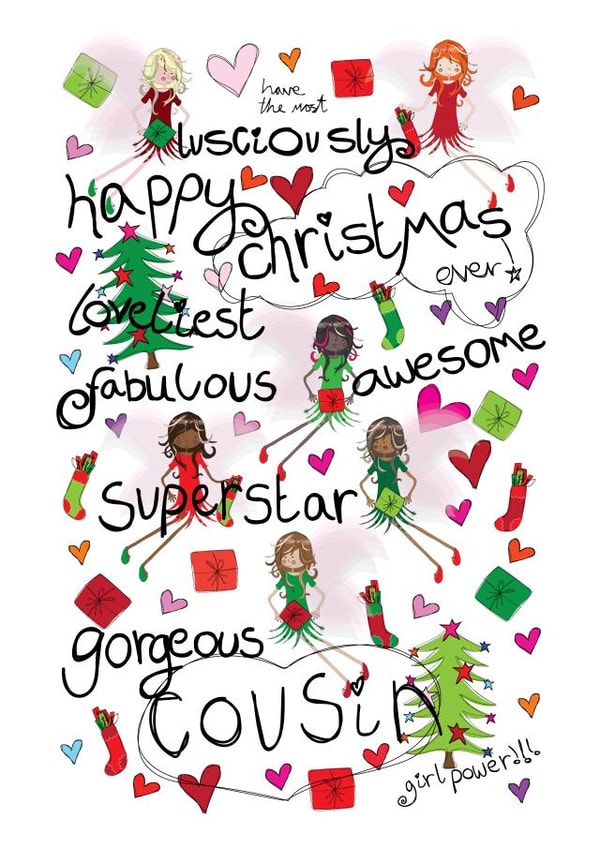 have
the most
lusciously
happy
christmas
ever
loveliest
fabulous
awesome
superstar
gorgeous
cousin
girl power!!!